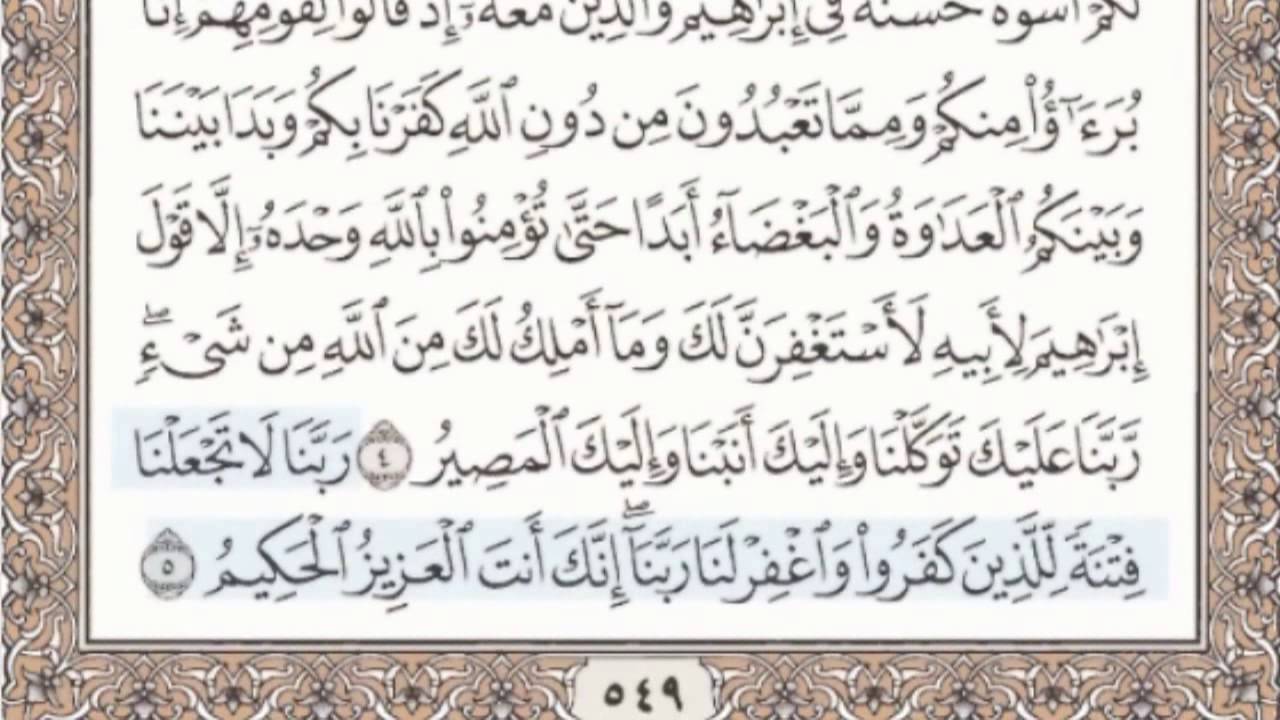 لَكُمْ أُسْوَةٌ حَسَنَةٌ فِىٓ إِبْرَٰهِيمَ وَٱلَّذِينَ مَعَهُۥٓ إِذْ قَالُوا۟ لِقَوْمِهِمْ إِنَّا
بُرَءَٰٓؤُا۟ مِنكُمْ وَمِمَّا تَعْبُدُونَ مِن دُونِ ٱللَّهِ كَفَرْنَا بِكُمْ وَبَدَا بَيْنَنَا
وَبَيْنَكُمُ ٱلْعَدَٰوَةُ وَٱلْبَغْضَآءُ أَبَدًا حَتَّىٰ تُؤْمِنُوا۟ بِٱللَّهِ وَحْدَهُۥٓ إِلَّا قَوْلَ
إِبْرَٰهِيمَ لِأَبِيهِ لَأَسْتَغْفِرَنَّ لَكَ وَمَآ أَمْلِكُ لَكَ مِنَ ٱللَّهِ مِن شَىْءٍۖ
رَّبَّنَا عَلَيْكَ تَوَكَّلْنَا وَإِلَيْكَ أَنَبْنَا وَإِلَيْكَ ٱلْمَصِيرُ ٤ رَبَّنَا لَا تَجْعَلْنَا
فِتْنَةً لِّلَّذِينَ كَفَرُوا۟ وَٱغْفِرْ لَنَا رَبَّنَآۖ إِنَّكَ أَنتَ ٱلْعَزِيزُ ٱلْحَكِيمُ ٥
٥٤٩